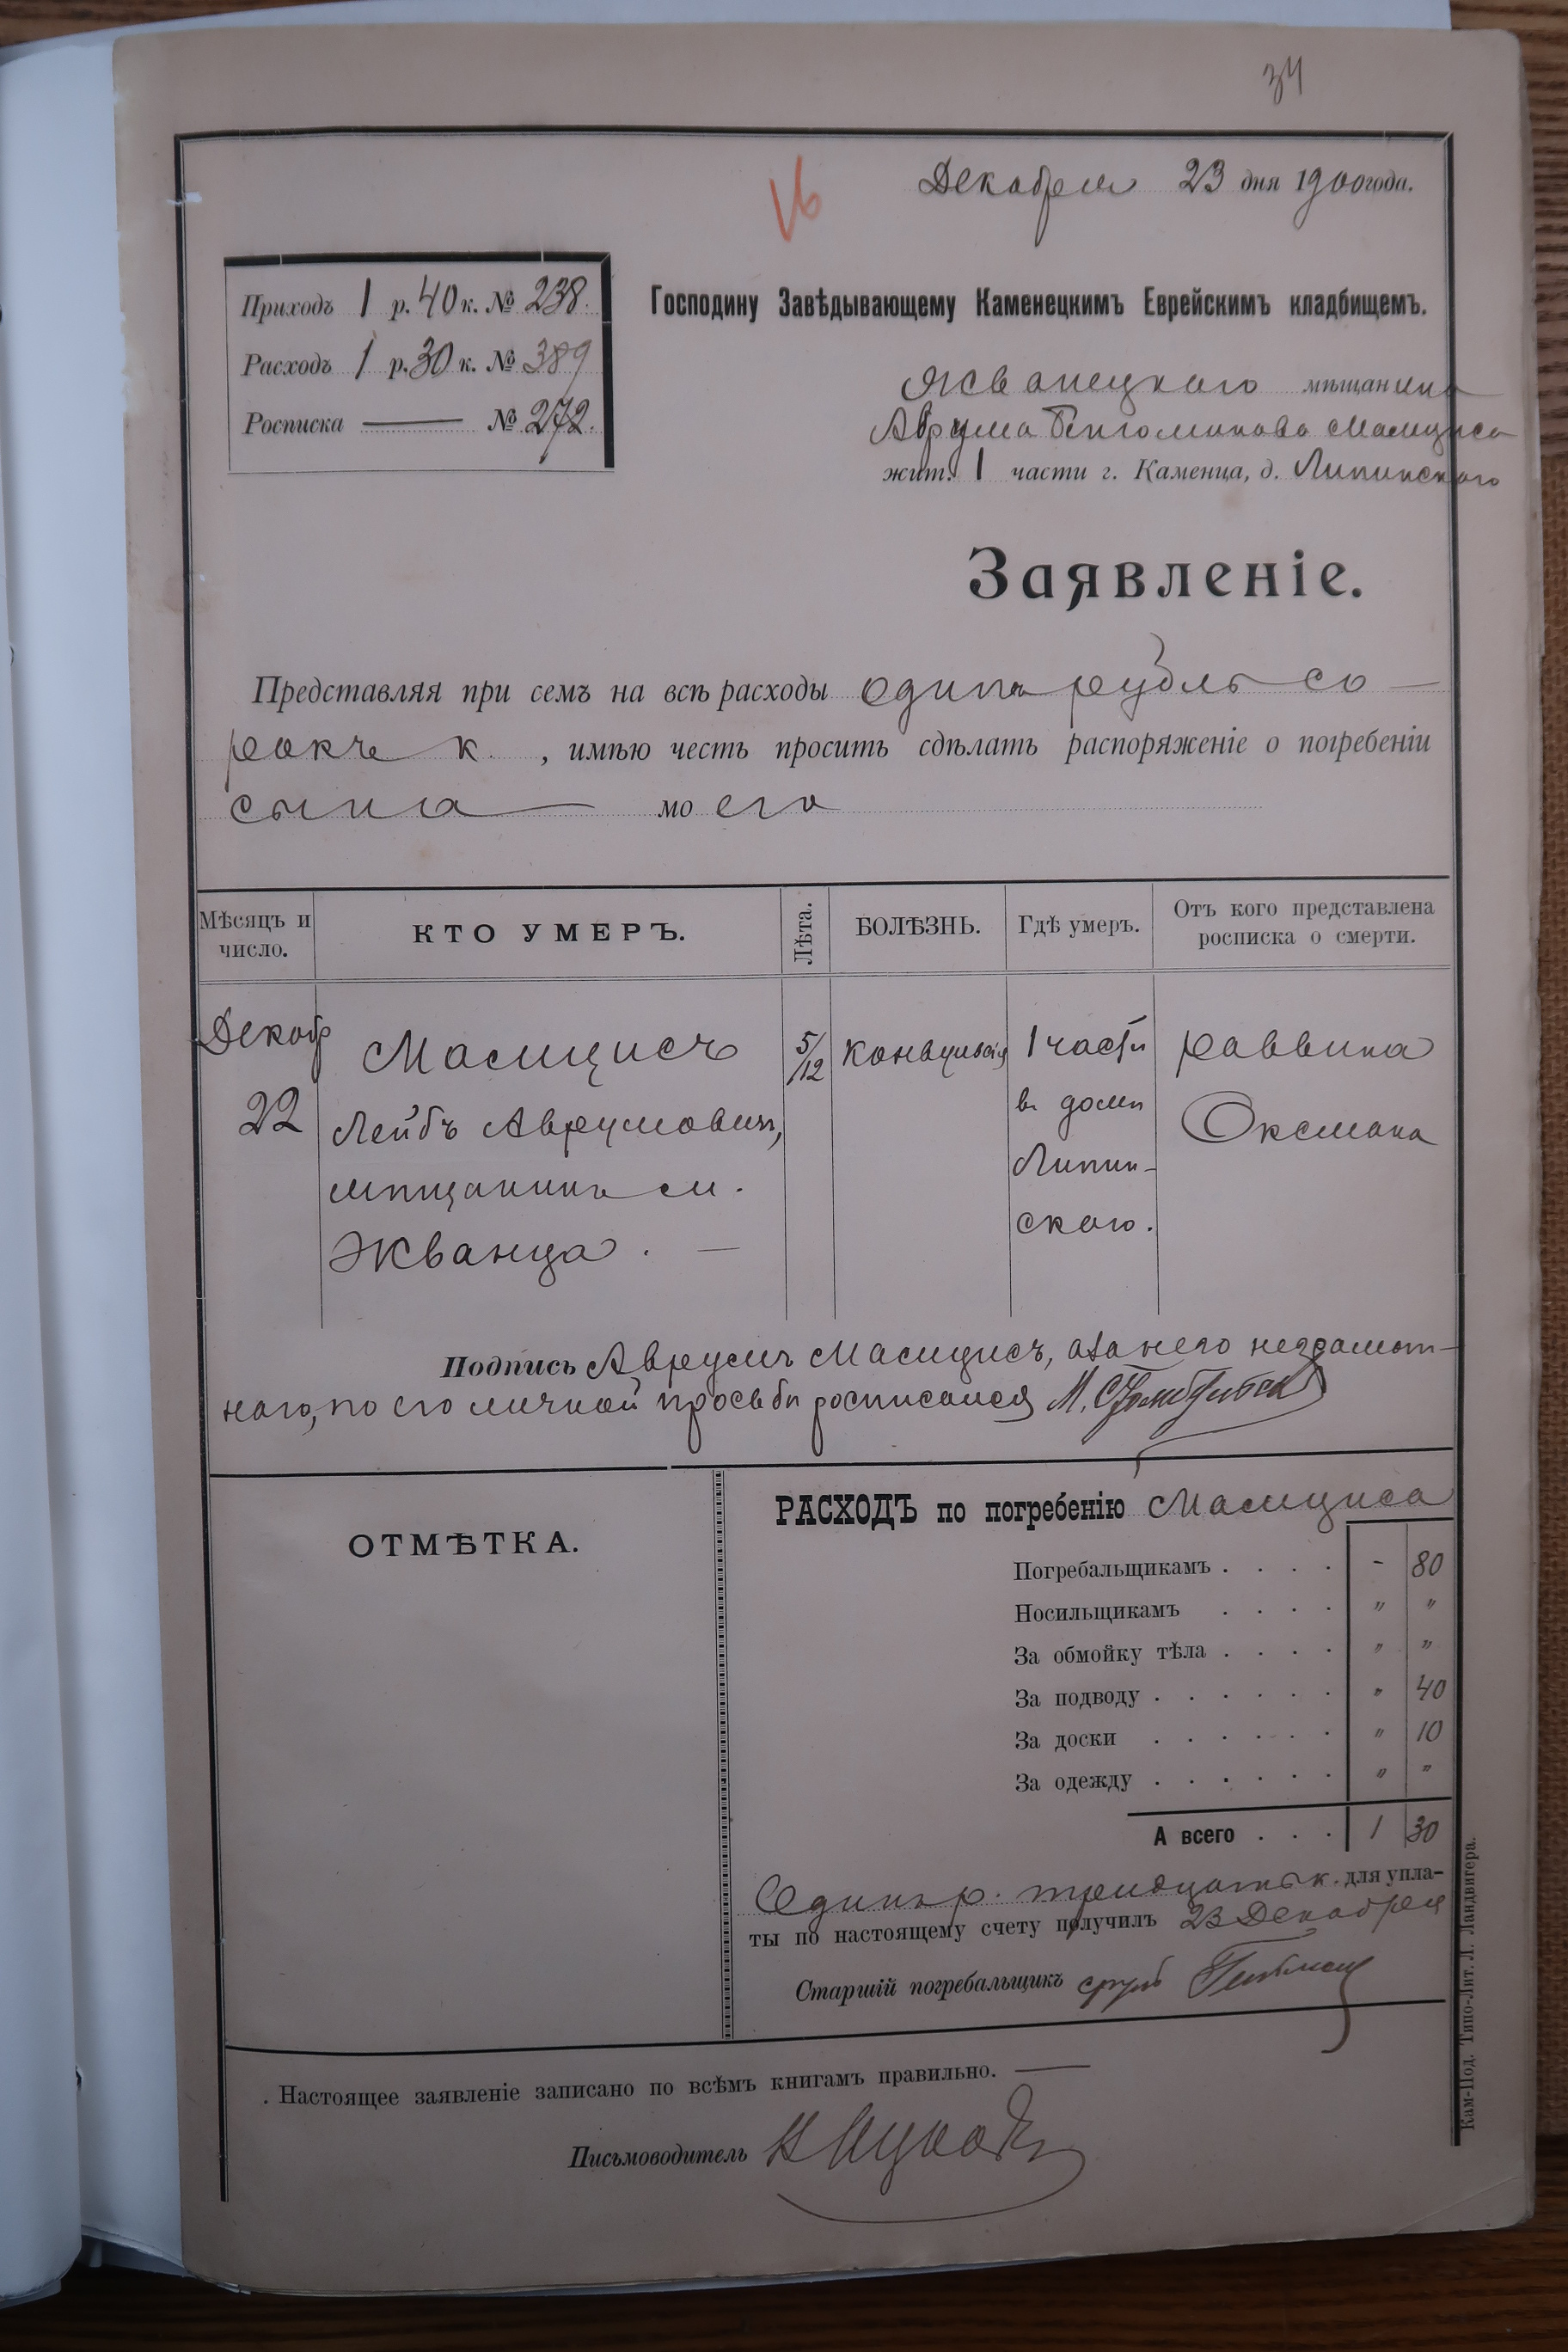 34
Декабря 23 дня 1900 года.
Приходъ 1 р. 40 к. № 238.
Расходъ 1 р. 30 к. № 389
Росписка — № 272.
Господину Завѣдывающему Каменецкимъ Еврейскимъ кладбищемъ.
Жванецкаго мѣщанина
Аврума Беніоминова Масициса
жит. 1 части г. Каменца, д. Липинскаго
Заявленіе.
Представляя при семъ на всѣ расходы одинъ рубль со-
рокъ к. , имѣю честь просить сдѣлать распоряженіе о погребеніи
сына — моего
Мѣсяцъ и число. КТО УМЕРЪ. Лѣта. БОЛѢЗНЬ. Гдѣ умеръ. Отъ кого представлена росписка о смерти.
Декабр Масицисъ 5/12 Конвульсія 1 части раввина
22 Лейбъ Аврумович, въ домѣ Оксмана
мѣщанинъ м. Липин-
Жванца. — скаго.
Подпись Аврумъ Масицисъ, а за него неграмот-
наго, по его личной просьбѣ росписался М.
РАСХОДЪ по погребенію Масициса
ОТМѢТКА.
Погребальщикамъ . . . . - 80
Носильщикамъ . . . . " "
За обмойку тѣла . . . . " "
За подводу . . . . . . " 40
За доски . . . . . . " 10
За одежду . . . . . . " "
А всего . . . 1 30
Одинъ р. тридцать к. для упла-
ты по настоящему счету получилъ 23 Декабря
Старшій погребальщикъ
Настоящее заявленіе записано по всѣмъ книгамъ правильно. —
Письмоводитель
Кам-Под. Типо-Лит. Л. Ландвигера.